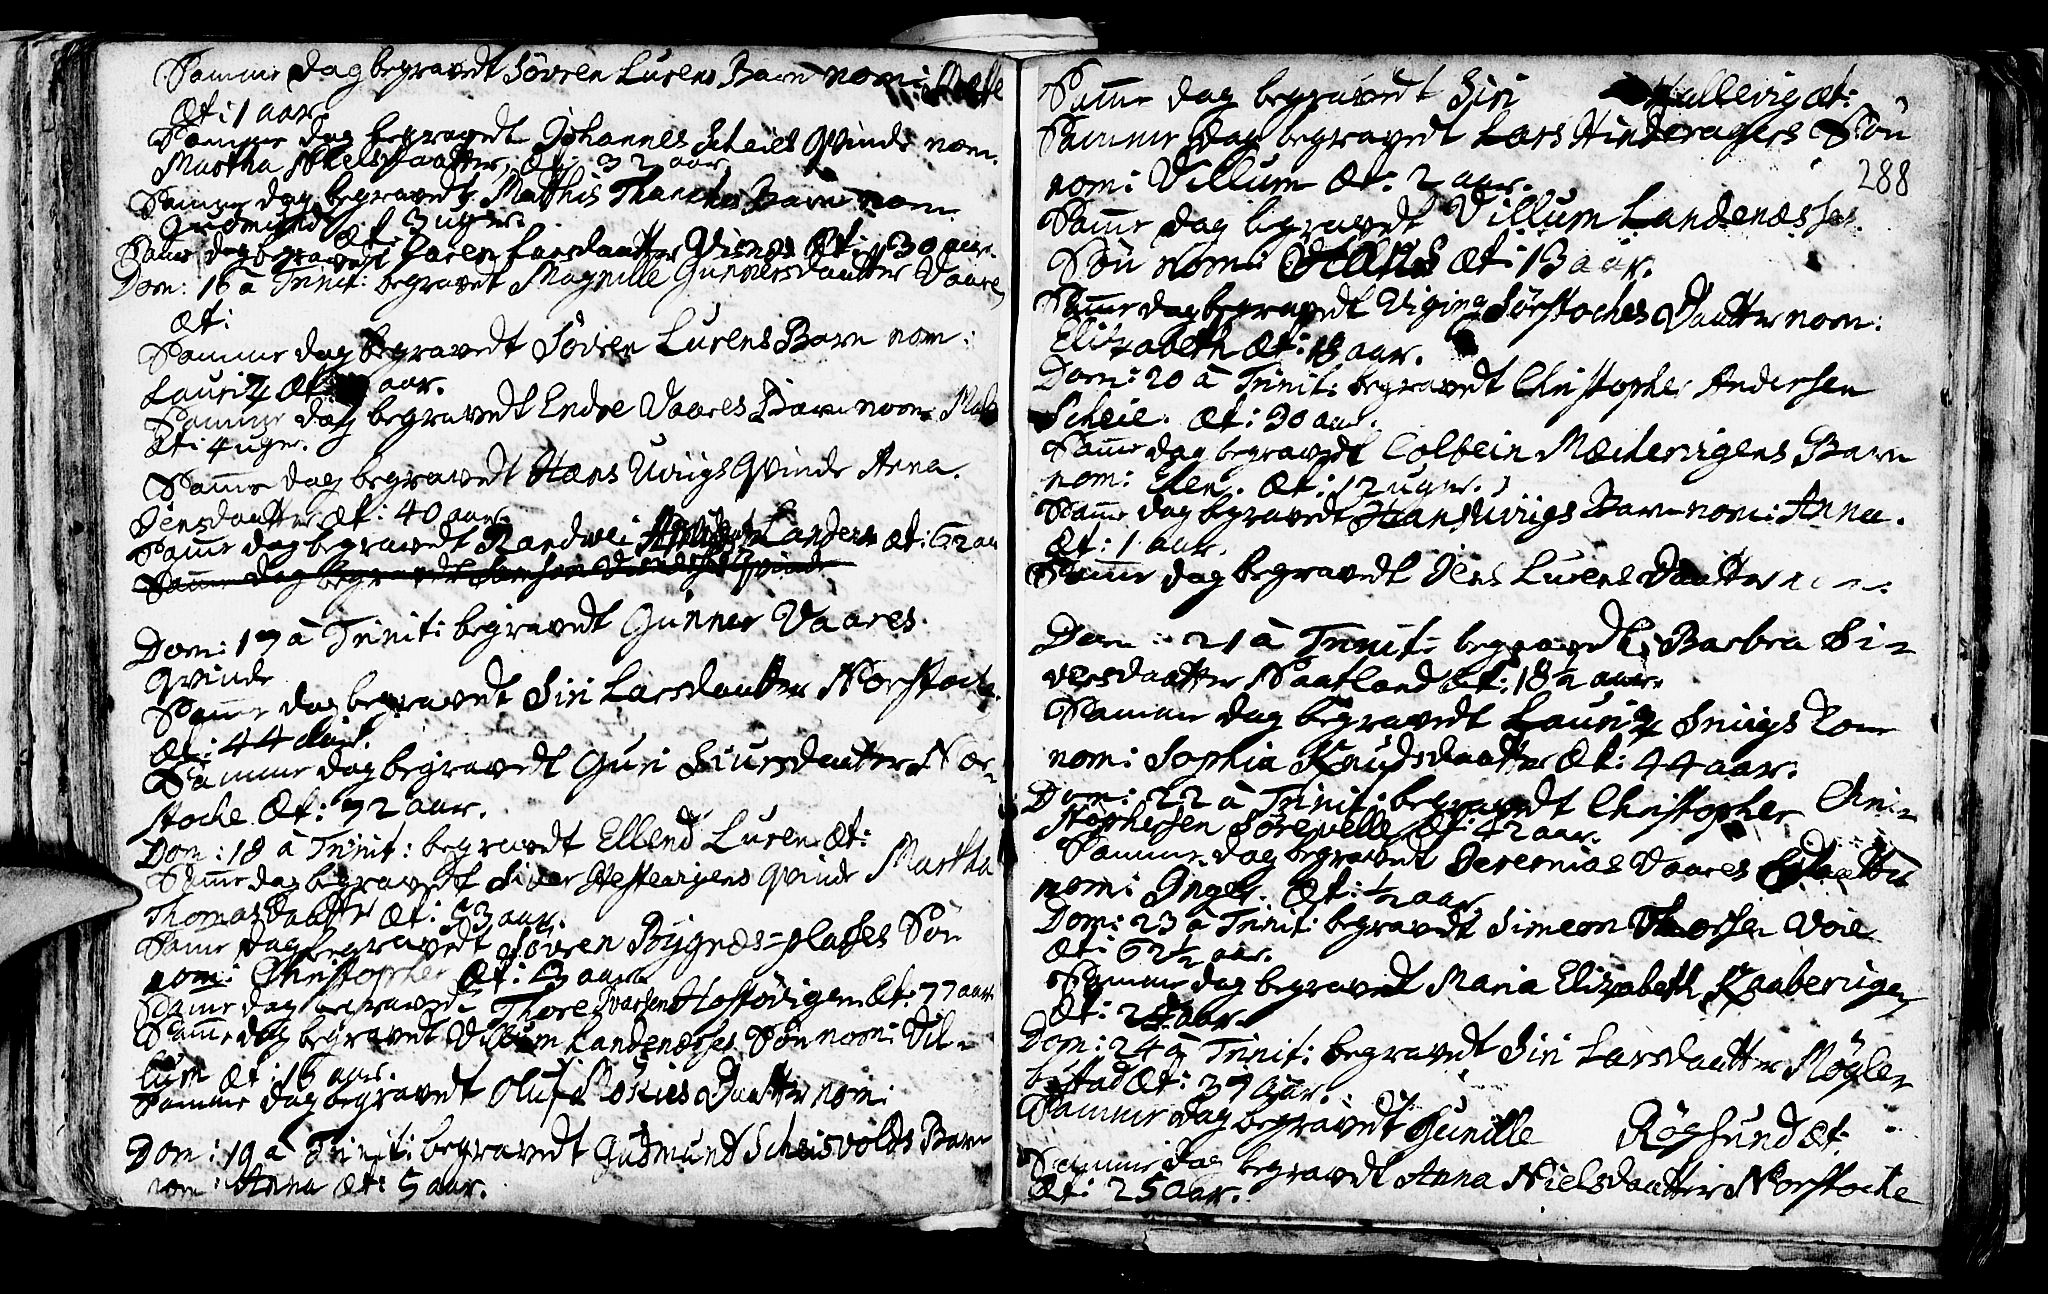 Samme dag begravedt Søvren Lurens Barn nom:
Æt: 1 aar.
Samme dag begravedt Johannes Scheies Qvinde nom:
Martha Nielsdaatter, Æt: 32 aar.
Samme dag begravedt Matthis Barn nom:
Gudmund Æt. 3 uger.
Samme dag begravedt Karen Larsdaatter Visnes Æt: 30 aar.
Dom: 16 à Trinit: begravet Magnille Gunnersdaatter Vaare
æt:
Samme dag begravedt Søvren Lurens Barn nom:
Lauritz Æt: aar.
Samme dag begravedt Endre Vaares Barn nom:
Æt: 4 uger.
Samme dag begravedt Hans Urigs Qvinde Anna
Jensdaatter Æt: 40 aar.
Samme dag begravedt Randvei Landere æt: 62 aar
Samme dag begravedt Qvinde
Dom: 17 à Trinit: begravedt Gunner Vaares
Qvinde
Samme dag begravedt Siri Larsdaatter Norstocke
Æt: 44 aar.
Samme dag begravedt Guri Siursdaatter Nor-
stocke Æt: 72 aar.
Dom: 18 à Trinit: begravedt Ellend Luren æt:
Samme dag begravedt Siver Qvinde Martha
Thomasdaatter æt: 53 aar.
Samme dag begravedt Søvren Bygnæs=plasses Søn
nom: Christopher Æt: aar.
Samme dag begravedt Thore Ivarsen æt: 77 aar.
Samme dag begravedt Villum Landenæsses Søn nom: Vil-
lum æt: 16 aar.
Samme dag begravedt Oluf Daatter nom:
Dom: 19 à Trinit: begravedt Gudmund Scheisvolds Barn
nom: Anna æt: 5 aar.
Samme dag begravedt Siri Hallevig æt:
Samme dag begravedt Lars Hinderagers Søn
288
nom: Villum Æt: 2 aar.
Samme dag begravedt Villum Landenæsses
Søn nom: Hans æt: 13 aar.
Samme dag begravedt Sørstockes Daatter nom:
Elizabeth æt: 18 aar.
Dom: 20 à Trinit: begravedt Christopher Andersen
Scheie. æt: 90 aar.
Samme dag begravedt Colbein Barn
nom: Elen. æt: 12 uger.
Samme dag begravedt Hans Urigs Barn nom: Anna.
æt: 1 aar.
Samme dag begravedt Jens Lurens Daatter nom:
Dom: 21 à Trinit: begravedt Barbra Si-
versdaatter Saatland æt: 18½ aar.
Samme dag begravedt Lauritz Snigs Kone
nom: Sophia Knudsdaatter Æt: 44 aar.
Dom: 22 à Trinit: begravedt Christopher Chri-
stophersen Sørevelle Æt: 42 aar.
Samme dag begravedt Jeremias Vaares Daatter
nom: Inger. Æt: ½ aar
Dom: 23 à Trinit: begravedt Simeon Thorsen Voie
æt: 62½ aar.
Samme dag begravedt Maria Elizabeth
Æt: aar.
Dom: 24 à Trinit: begravedt Siri Larsdaatter Møgle-
bøstad æt: 37 aar.
Samme dag begravedt Gunille Røgsund æt:
Samme dag begravedt Anna Nielsdaatter Norstocke
æt: 25 aar.